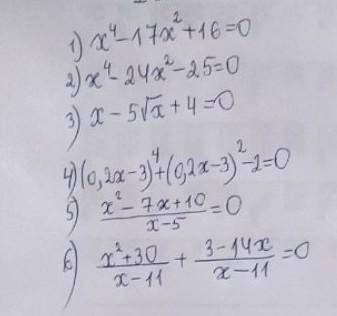 1) x⁴-17x²+16=0
2) x⁴-24x²-25=0
3) x-5√x+4=0
4) (0,2x-3)⁴+(0,2x-3)²-2=0
5) (x²-7x+10)/(x-5)=0
6) (x²+30)/(x-11) + (3-14x)/(x-11)=0